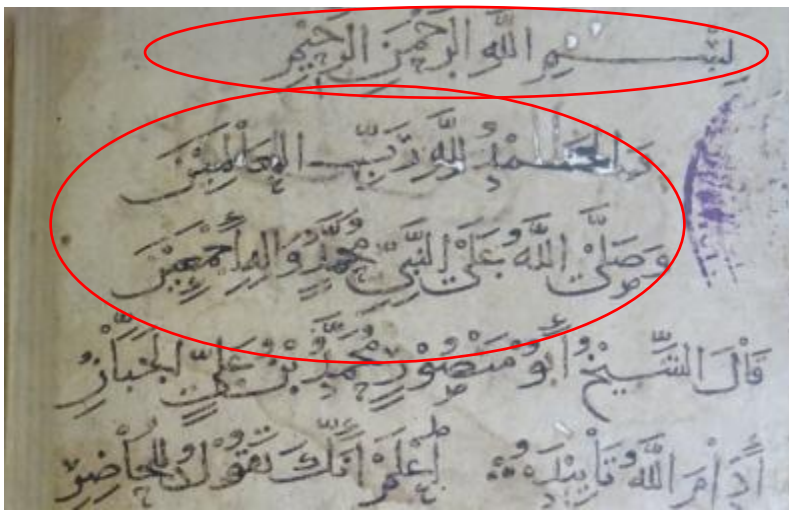 بِسْمِ اللَّهِ الرَّحْمَنِ الرَّحِيمِ
وَالْحَمْدُ لِلَّهِ رَبِّ الْعَالَمِينَ
وَصَلَّى اللَّهُ عَلَى النَّبِيِّ مُحَمَّدٍ وَآلِهِ أَجْمَعِينَ
قَالَ الشَّيْخُ أَبُو مَنْصُورٍ مُحَمَّدُ بْنُ عَلِيٍّ الْجَبَّانُ
أَدَامَ اللَّهُ تَأْيِيدَهُ اِعْلَمْ أَنَّكَ تَقُولُ لِلْحَاضِرِ